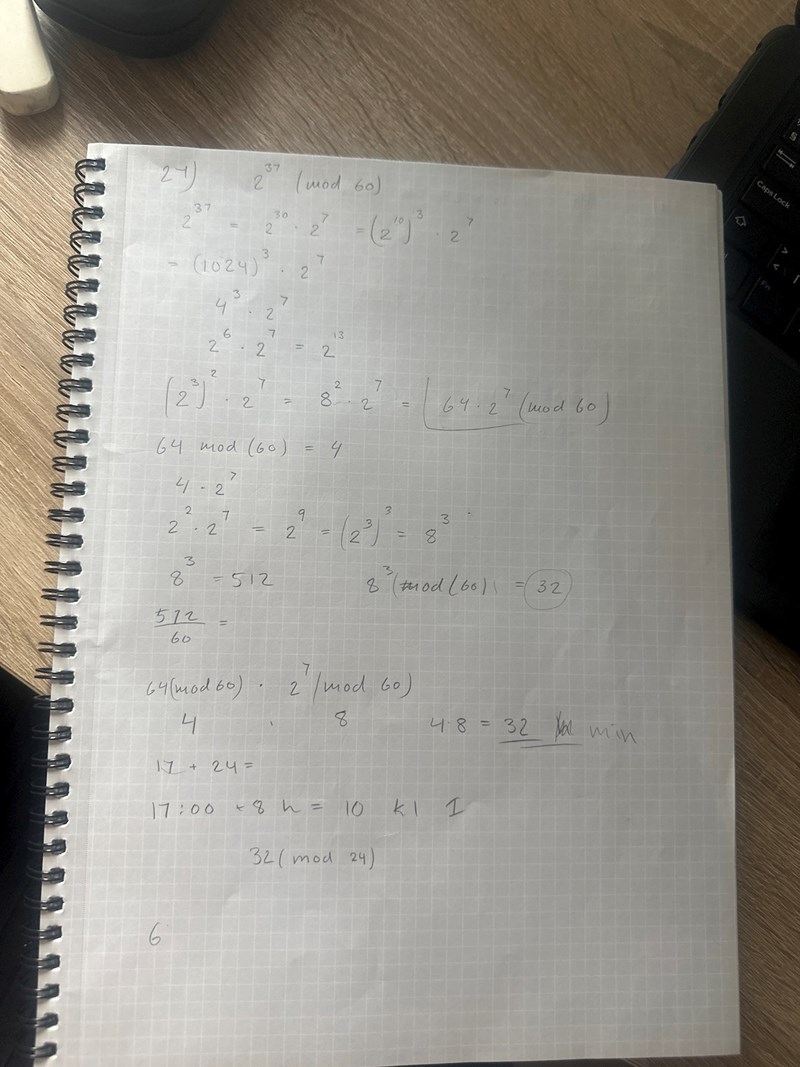 24) 2^37 (mod 60)
2^37 = 2^30 · 2^7 = (2^10)^3 · 2^7
= (1024)^3 · 2^7
4^3 · 2^7
2^6 · 2^7 = 2^13
(2^3)^2 · 2^7 = 8^2 · 2^7 = 64 · 2^7 (mod 60)
64 mod (60) = 4
4 · 2^7
2^2 · 2^7 = 2^9 = (2^3)^3 = 8^3
8^3 = 512 8^3 (mod (60) = 32
512/60 =
64(mod 60) · 2^7 (mod 60)
4 · 8 4·8 = 32 min
17 + 24 =
17:00 + 8 h = 10 kl I
32 (mod 24)
6
Caps Lock
Fn